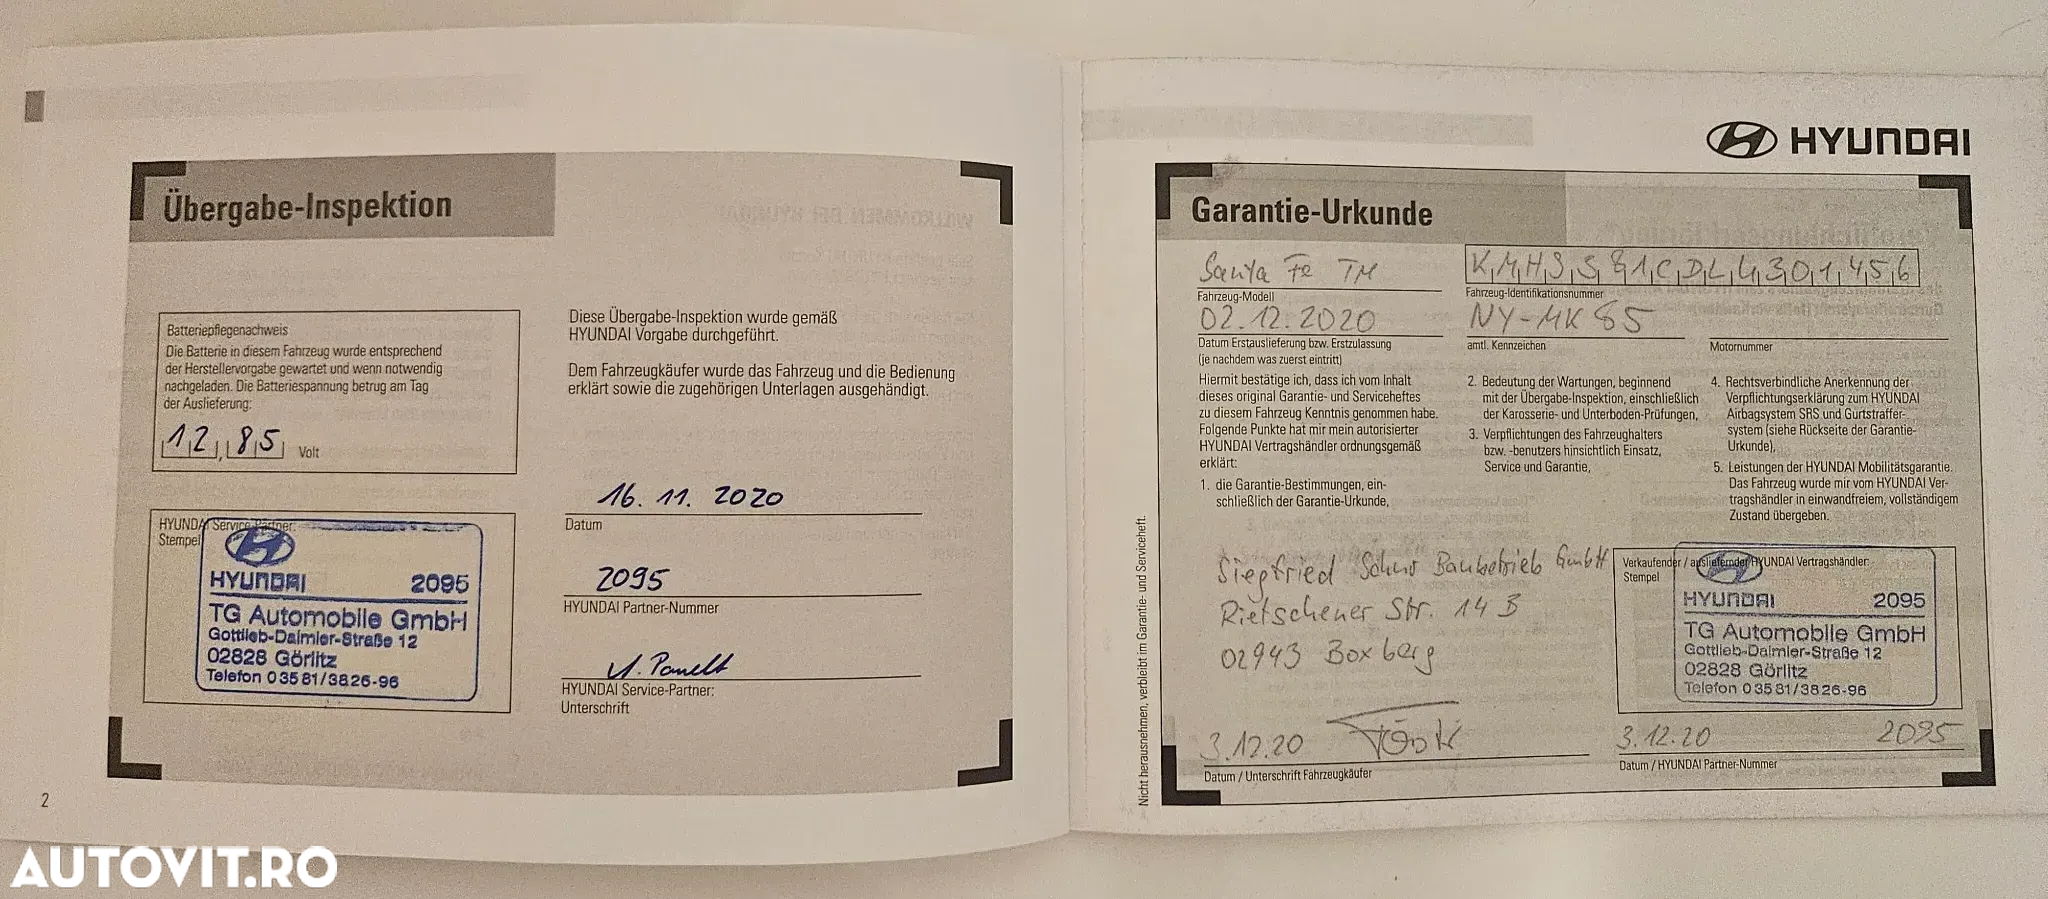 Übergabe-Inspektion
Batteriepflegenachweis
Die Batterie in diesem Fahrzeug wurde entsprechend
der Herstellervorgabe gewartet und wenn notwendig
nachgeladen. Die Batteriespannung betrug am Tag
der Auslieferung:
12,85 Volt
HYUNDAI Service-Partner:
Stempel
HYUNDAI 2095
TG Automobile GmbH
Gottlieb-Daimler-Straße 12
02828 Görlitz
Telefon 03581/3826-96
Diese Übergabe-Inspektion wurde gemäß
HYUNDAI Vorgabe durchgeführt.
Dem Fahrzeugkäufer wurde das Fahrzeug und die Bedienung
erklärt sowie die zugehörigen Unterlagen ausgehändigt.
16.11.2020
Datum
2095
HYUNDAI Partner-Nummer
HYUNDAI Service-Partner:
Unterschrift
2
HYUNDAI
Garantie-Urkunde
Santa Fe TM
Fahrzeug-Modell
KMHS581CDLU301456
Fahrzeug-Identifikationsnummer
02.12.2020
Datum Erstauslieferung bzw. Erstzulassung
(je nachdem was zuerst eintritt)
NY-MK 85
amtl. Kennzeichen
Motornummer
Hiermit bestätige ich, dass ich vom Inhalt
dieses original Garantie- und Serviceheftes
zu diesem Fahrzeug Kenntnis genommen habe.
Folgende Punkte hat mir mein autorisierter
HYUNDAI Vertragshändler ordnungsgemäß
erklärt:
1. die Garantie-Bestimmungen, ein-
schließlich der Garantie-Urkunde,
2. Bedeutung der Wartungen, beginnend
mit der Übergabe-Inspektion, einschließlich
der Karosserie- und Unterboden-Prüfungen,
3. Verpflichtungen des Fahrzeughalters
bzw. -benutzers hinsichtlich Einsatz,
Service und Garantie,
4. Rechtsverbindliche Anerkennung der
Verpflichtungserklärung zum HYUNDAI
Airbagsystem SRS und Gurtstraffer-
system (siehe Rückseite der Garantie-
Urkunde),
5. Leistungen der HYUNDAI Mobilitätsgarantie.
Das Fahrzeug wurde mir vom HYUNDAI Ver-
tragshändler in einwandfreiem, vollständigem
Zustand übergeben.
Siegfried Baubetrieb GmbH
Rietschener Str. 14 B
02943 Boxberg
3.12.20
Datum / Unterschrift Fahrzeugkäufer
Verkaufender / ausliefernder HYUNDAI Vertragshändler:
Stempel
HYUNDAI 2095
TG Automobile GmbH
Gottlieb-Daimler-Straße 12
02828 Görlitz
Telefon 03581/3826-96
3.12.20 2095
Datum / HYUNDAI Partner-Nummer
Nicht herausnehmen, verbleibt im Garantie- und Serviceheft.
AUTOVIT.RO